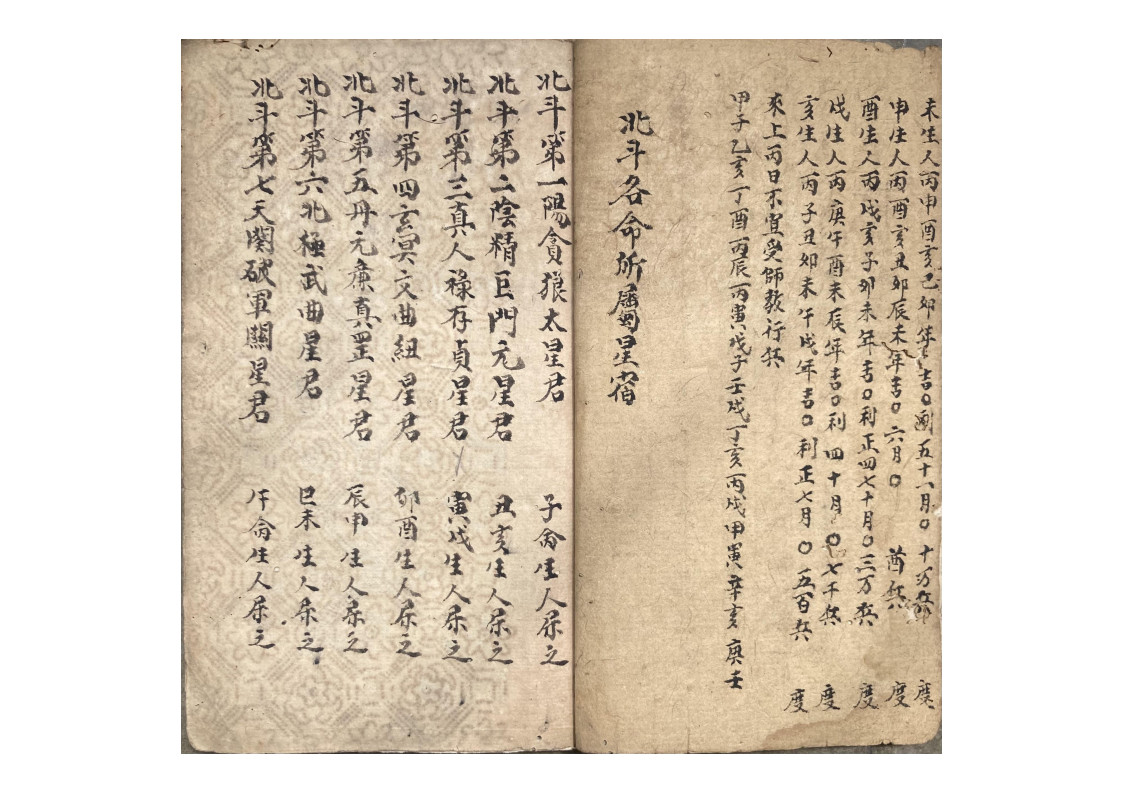 未生人丙申酉亥己卯年吉〇利五十一月〇十万兵 度
申生人丙酉亥丑卯辰未年吉〇六月〇 酋兵 度
酉生人丙戌亥子卯未年吉〇利正四七十月〇三万兵 度
戌生人丙庚午酉未辰年吉〇利四十月〇七千兵 度
亥生人丙子丑卯未午戌年吉〇利正七月〇五百兵 度
來上丙日不宜受師教行兵
甲子乙亥丁酉丙辰丙寅戊子壬戌丁亥丙戌甲寅辛亥庚壬
北斗各命所屬星宿
北斗第一陽貪狼太星君 子命生人屬之
北斗第二陰精巨門元星君 丑亥生人屬之
北斗第三真人祿存貞星君 寅戌生人屬之
北斗第四玄冥文曲紐星君 卯酉生人屬之
北斗第五丹元廉真罡星君 辰申生人屬之
北斗第六北極武曲星君 巳未生人屬之
北斗第七天関破軍關星君 午命生人屬之